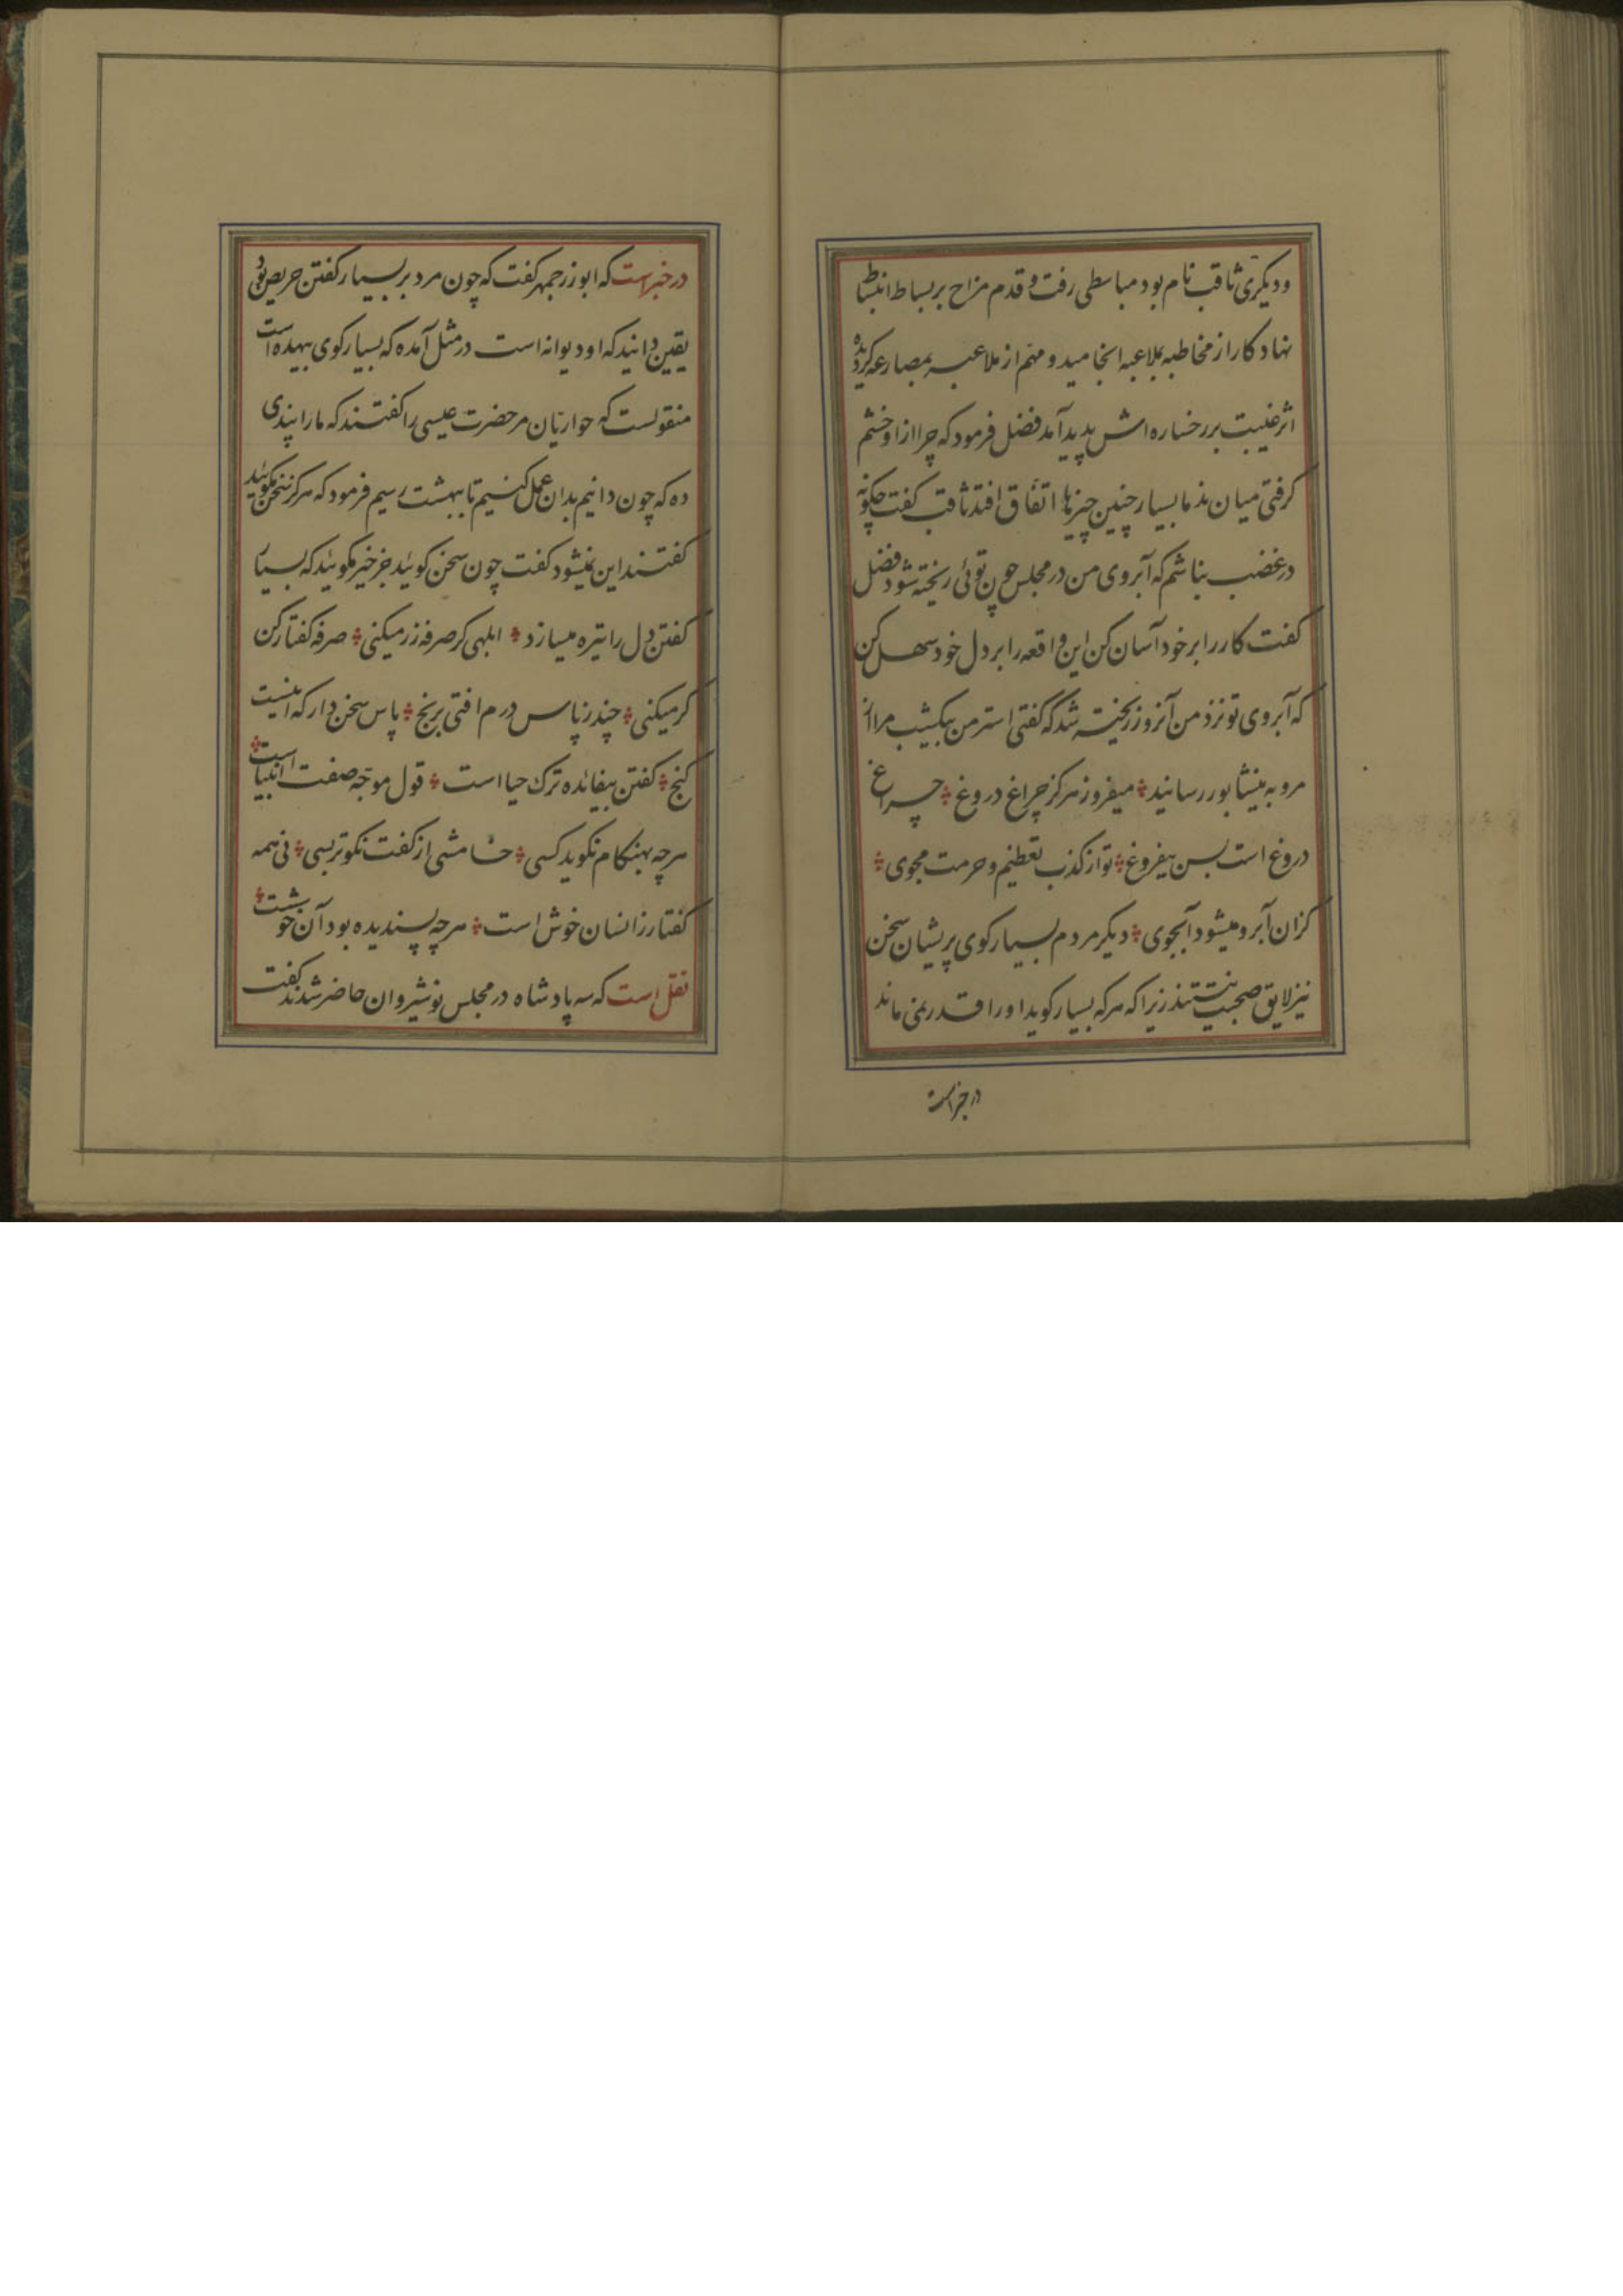 و دیکری ثاقب نام بود مباسطی رفت و قدم مزاح بر بساط انبساط
نهاد کار از مخاطبه بملاعبه انجامید و مهم از ملاعبه بمصارعه کردیده
اثر غیبت بر رخساره اش پدید آمد فضل فرمود که چرا از او خشم
کرفتی میان ندما بسیار چنین چیزها اتفاق افتد ثاقب کفت چکونه
در غضب نباشم که آبروی من در مجلس چون توئی ریخته شود فضل
کفت کار را بر خود آسان کن این واقعه را بر دل خود سهل کن
که آبروی تو نزد من آنروز ریخته شد که کفتی استر من بیکشب مرا از
مرو به نیشابور رسانید ؞ میفروز هرکز چراغ دروغ ؞ چراغ
دروغ است بس بیفروغ ؞ تو از کذب تعظیم و حرمت مجوی ؞
کزان آبرو میشود آبجوی ؞ دیکر مردم بسیار کوی پریشان سخن
نیز لایق صحبت نیستند زیرا که هرکه بسیار کوید او را قدر نمی ماند
در خبر است
در خبر است که ابوزرجمهر کفت که چون مرد بر بسیار کفتن حریص بود
یقین دانید که او دیوانه است در مثل آمده که بسیار کوی بیهده است
منقولست که حواریان مر حضرت عیسی را کفتند که ما را پندی
ده که چون دانیم بدان عمل کنیم تا ببهشت رسیم فرمود که هرکز سخن مکوئید
کفتند این نمیشود کفت چون سخن کوئید جز خیر مکوئید که بسیار
کفتن دل را تیره میسازد ؞ ابلهی کر صرفه زر میکنی ؞ صرفه کفتار کن
کر میکنی ؞ چند ز پاس درم افتی برنج ؞ پاس سخن دار که اینست
کنج ؞ کفتن بیفائده ترک حیا است ؞ قول موجه صفت انبیا است ؞
هرچه بهنکام نکوید کسی ؞ خامشی از کفت نکوتر بسی ؞ نی همه
کفتار ز انسان خوش است ؞ هرچه پسندیده بود آن خوشست ؞
نقل است که سه پادشاه در مجلس نوشیروان حاضر شدند کفت